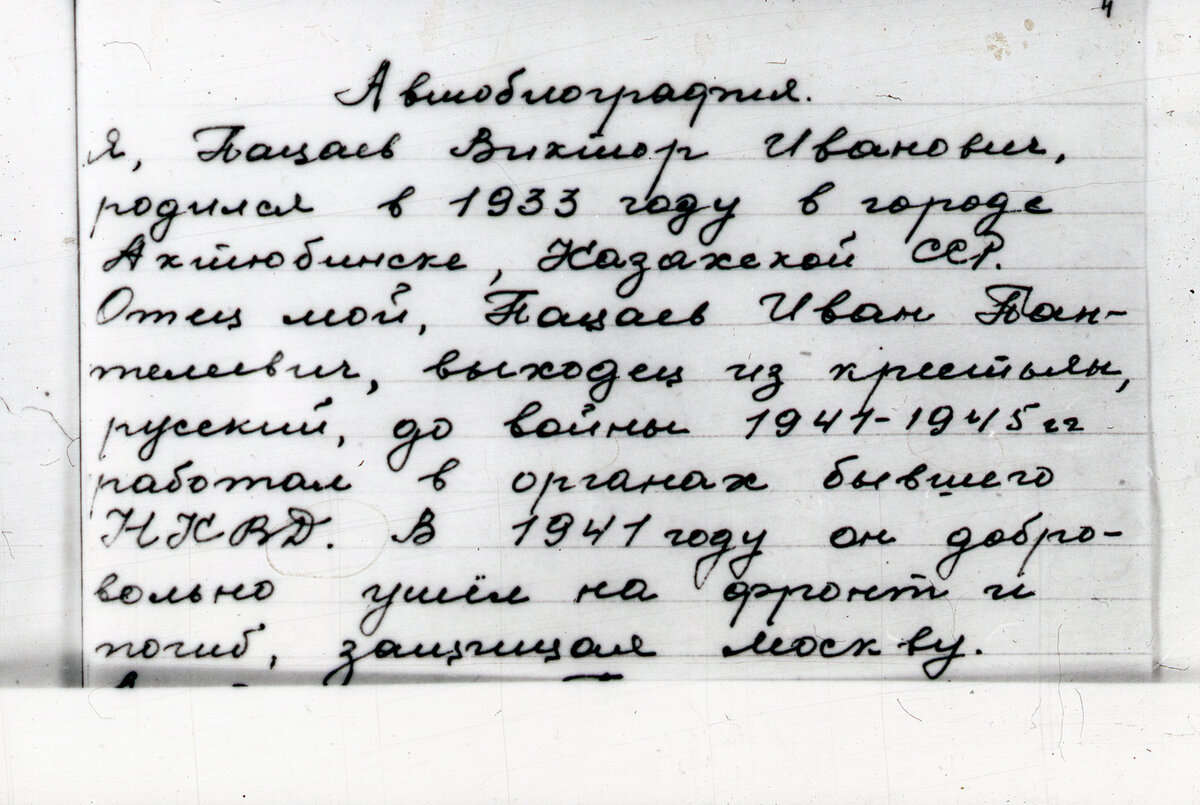 Автобиография.
Я, Пацаев Виктор Иванович,
родился в 1933 году в городе
Актюбинске, Казахской ССР.
Отец мой, Пацаев Иван Пан-
телеевич, выходец из крестьян,
русский, до войны 1941-1945 гг
работал в органах бывшего
НКВД. В 1941 году он добро-
вольно ушёл на фронт и
погиб, защищая Москву.